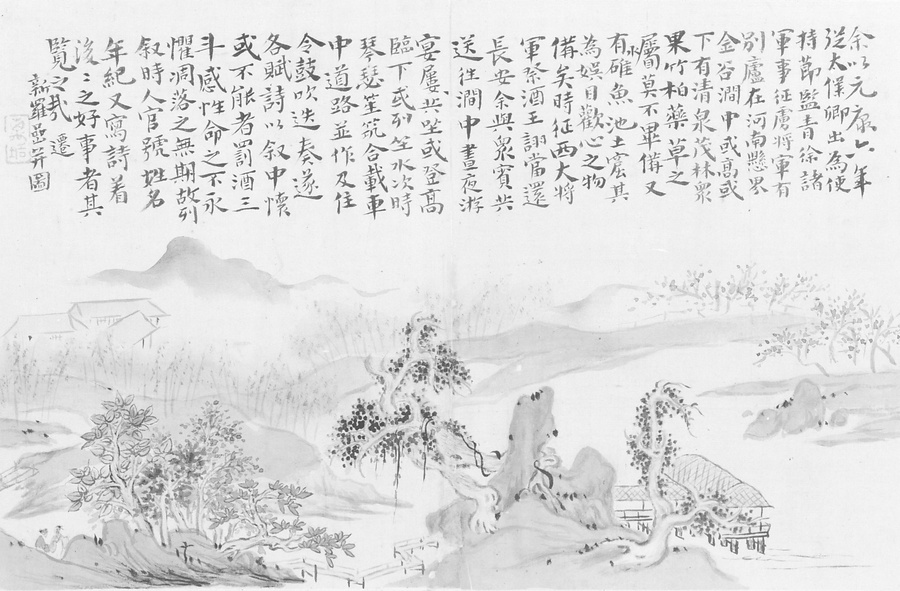 余以元康六年
從太僕卿出為使
持節監青徐諸
軍事征虜將軍有
別廬在河南懸界
金谷澗中或高或
下有清泉茂林眾
果竹柏藥草之
屬莫不畢備又
有水碓魚池土窟其
為娛目歡心之物
備矣時征西大將
軍祭酒王詡當還
長安余與眾賓共
送往澗中晝夜游
宴屢坐或登高
臨下或列坐水次時
琴瑟笙筑合載車
中道路並作及住
令鼓吹迭奏遂
各賦詩以叙中懷
或不能者罰酒三
斗感性命之不永
懼凋落之無期故列
叙時人官號姓名
年紀又寫詩著
後〻之好事者其
覽之哉 遷
新羅喦并圖